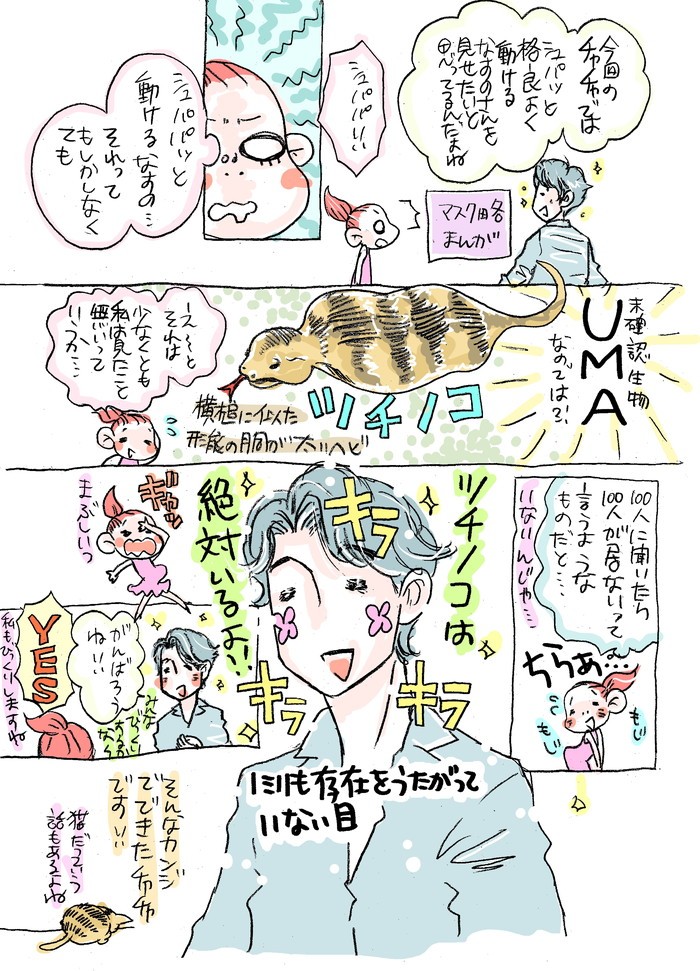 今回の
チャチャでは
シュパッと
格好良く
動ける
なすのさんを
見せたいと
思ってるんだよね
マスク田各
まんが
シュパパパいい
シュパパッと
動けるなすの…
それって
もしかしなく
ても
未確認生物
UMA
なのでは?!
ツチノコ
横槌に似た
形態の胴が太いヘビ
え〜と
それは
少なくとも
私は見たこと
無いって
いうか…
100人に聞いたら
100人が居ないって
言うような
ものだと…
いないんじゃ…
ちらぁ…
もじ
もじ
ツチノコは
絶対いるよ!!
キラ
キラ
キラ
1ミリも存在をうたがって
いない目
ギャッ
まぶしいっ
がんばろう
ねいい
みんな
びっくり
するか
なぁ
YES
私もびっくりしますね
そんなカンジ
でできたチャチャ
ですいい
猫だっていう
話もあるよね